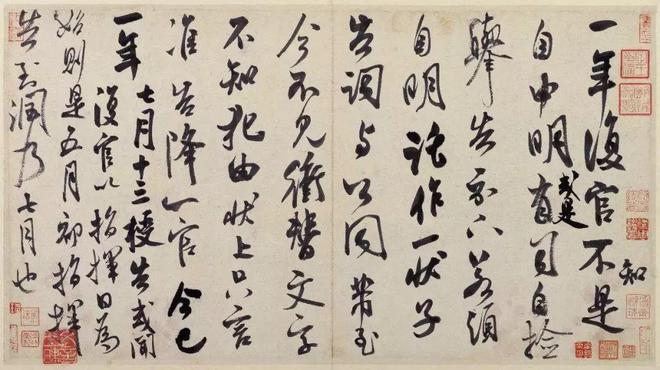 一年復官不是
知
自申明或是有司自檢
舉告示下若須
自明託作一狀子
告調与公同
今不見衝替文字
不知犯由狀上只言
准告降一官今已
一年七月十三授告或聞
復官以指揮日為
始則是五月初指揮
告到潤乃七月也